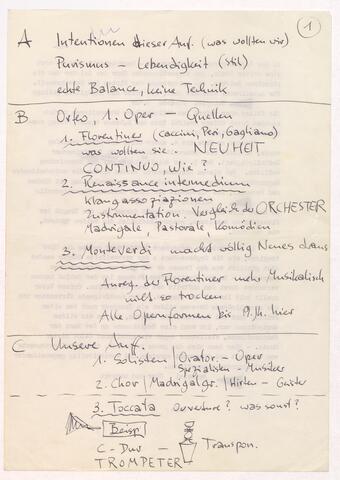 1
A Intentionen dieser Auf. (was wollten wir)
Purismus – Lebendigkeit (Stil)
echte Balance, keine Technik
B Orfeo, 1. Oper – Quellen
1. Florentiner (Caccini, Peri, Gagliano)
was wollten sie. NEUHEIT
CONTINUO, wie?
2. Renaissance intermedium
Klangassoziazionen
Instrumentation. Vergleich der ORCHESTER
Madrigale, Pastorale, Komödien
3. Monteverdi macht völlig Neues draus
Anreg. der Florentiner mehr Musikalisch
nicht so trocken
Alle Opernformen bis 19. Jh. hier
C Unsere Auff.
1. Solisten / Orator. – Oper
Spezialisten – Musiker
2. Chor / Madrigalgr. / Hirten – Geister
3. Toccata Ouverture? was sonst?
Beisp
C-Dur – Transpon.
TROMPETER